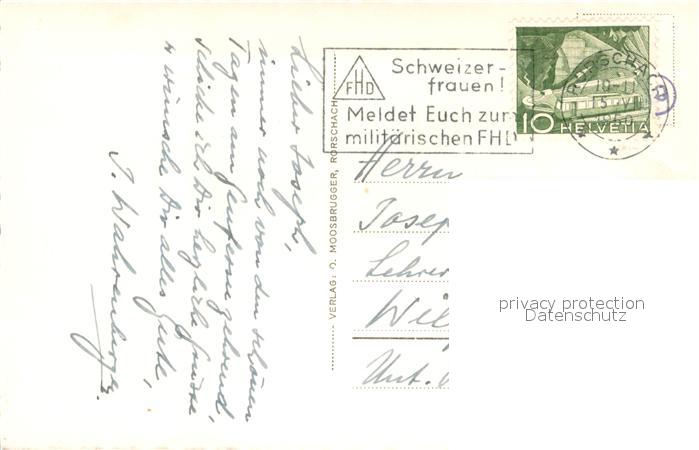 Lieber Joseph,
immer noch von den schönen
Tagen am Genfersee zehrend,
schicke ich Dir herzliche Grüsse
u. wünsche Dir alles Gute,
J. Wahrenberger.
VERLAG: O. MOOSBRUGGER, RORSCHACH
FHD
Schweizer-
frauen!
Meldet Euch zum
militärischen FHD
10 HELVETIA
RORSCHACH
Herrn
Josep
Lehrer
Wil
Unt.
privacy protection
Datenschutz